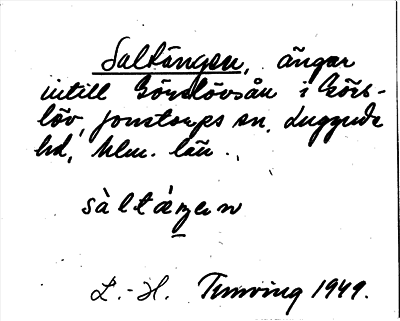 Saltängen, ängar
intill Görslövsån i Görs-
löv, Jonstorps sn, Luggude
hd, Mlm. län.
sàltáŋen
L.-H. Turving 1949.